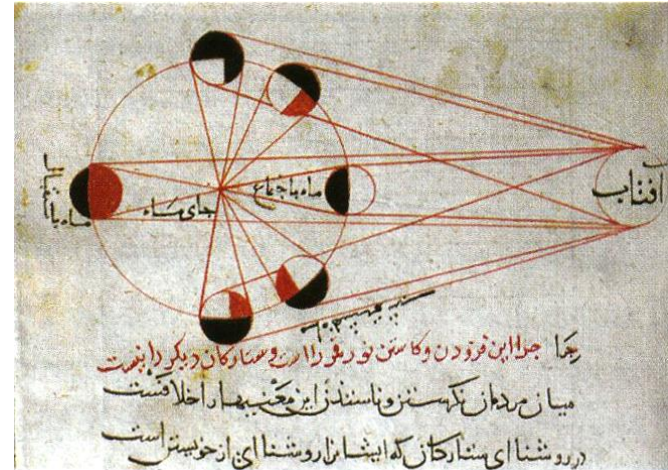 آفتاب
ماه باجتماع
جای ماه
ماه باستقبال
چرا این فزودن و کاستن نور قمر راست و ستارکان دیکر را نیست
میان مردمان نکرستن و ناسندن این معنیها را خلافست
در روشناای ستارکان که ایشانرا روشناای از خویشتن است